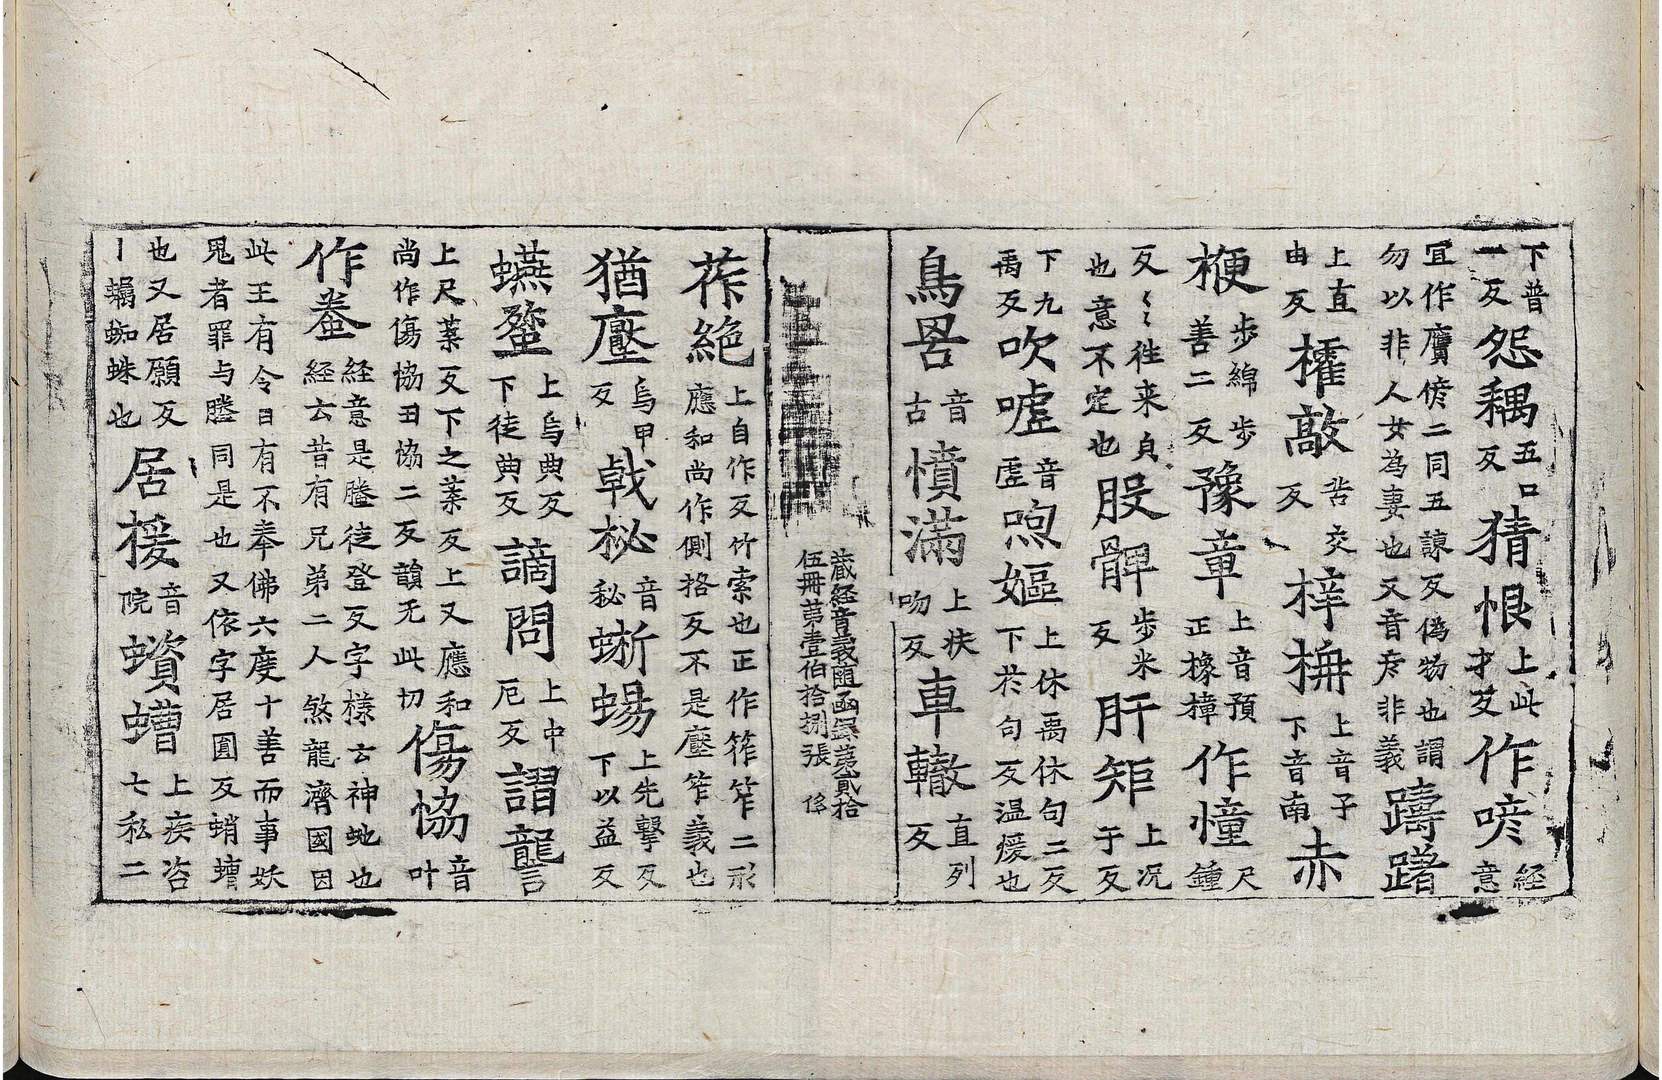 下普一反怨耦五口反猜恨上此才反作喭經意
宜作贗偐二同五諫反偽物也謂勿以非人女為妻也又音彦非義躊躇
上直由反櫂敲苦交反梓栴上音子下音南赤
楩步綿步善二反豫章上音預正橡樟作憧尺鍾
反〻徃来皃也意不定也股髀步米反肝矩上况于反
下九禹反吹嘘音虗喣嫗上休禹休句二反下扵句反温煖也
鳥罟音古憤滿上扶吻反車轍直列反
蔵經音義隨函録第貳拾伍冊第壹伯拾捌張
莋絶上自作反竹索也正作筰笮二形應和尚作側格反不是壓笮義也
猶壓烏甲反戟柲音秘蜥蜴上先擊反下以益反
上烏典反下徒典反謫問上中厄反謵讋
上尺葉反下之葉反上又應和尚作傷協丑協二反韻无此切傷恊音叶
作経意是螣徒登反字樣云神虵也経云昔有兄弟二人煞龍濟國因
此王有令日有不奉佛六度十善而事妖鬼者罪与螣同是也又依字居圓反蛸
也又居願反丨蠾蜘蛛也居援音院蠀螬上疾咨七私二